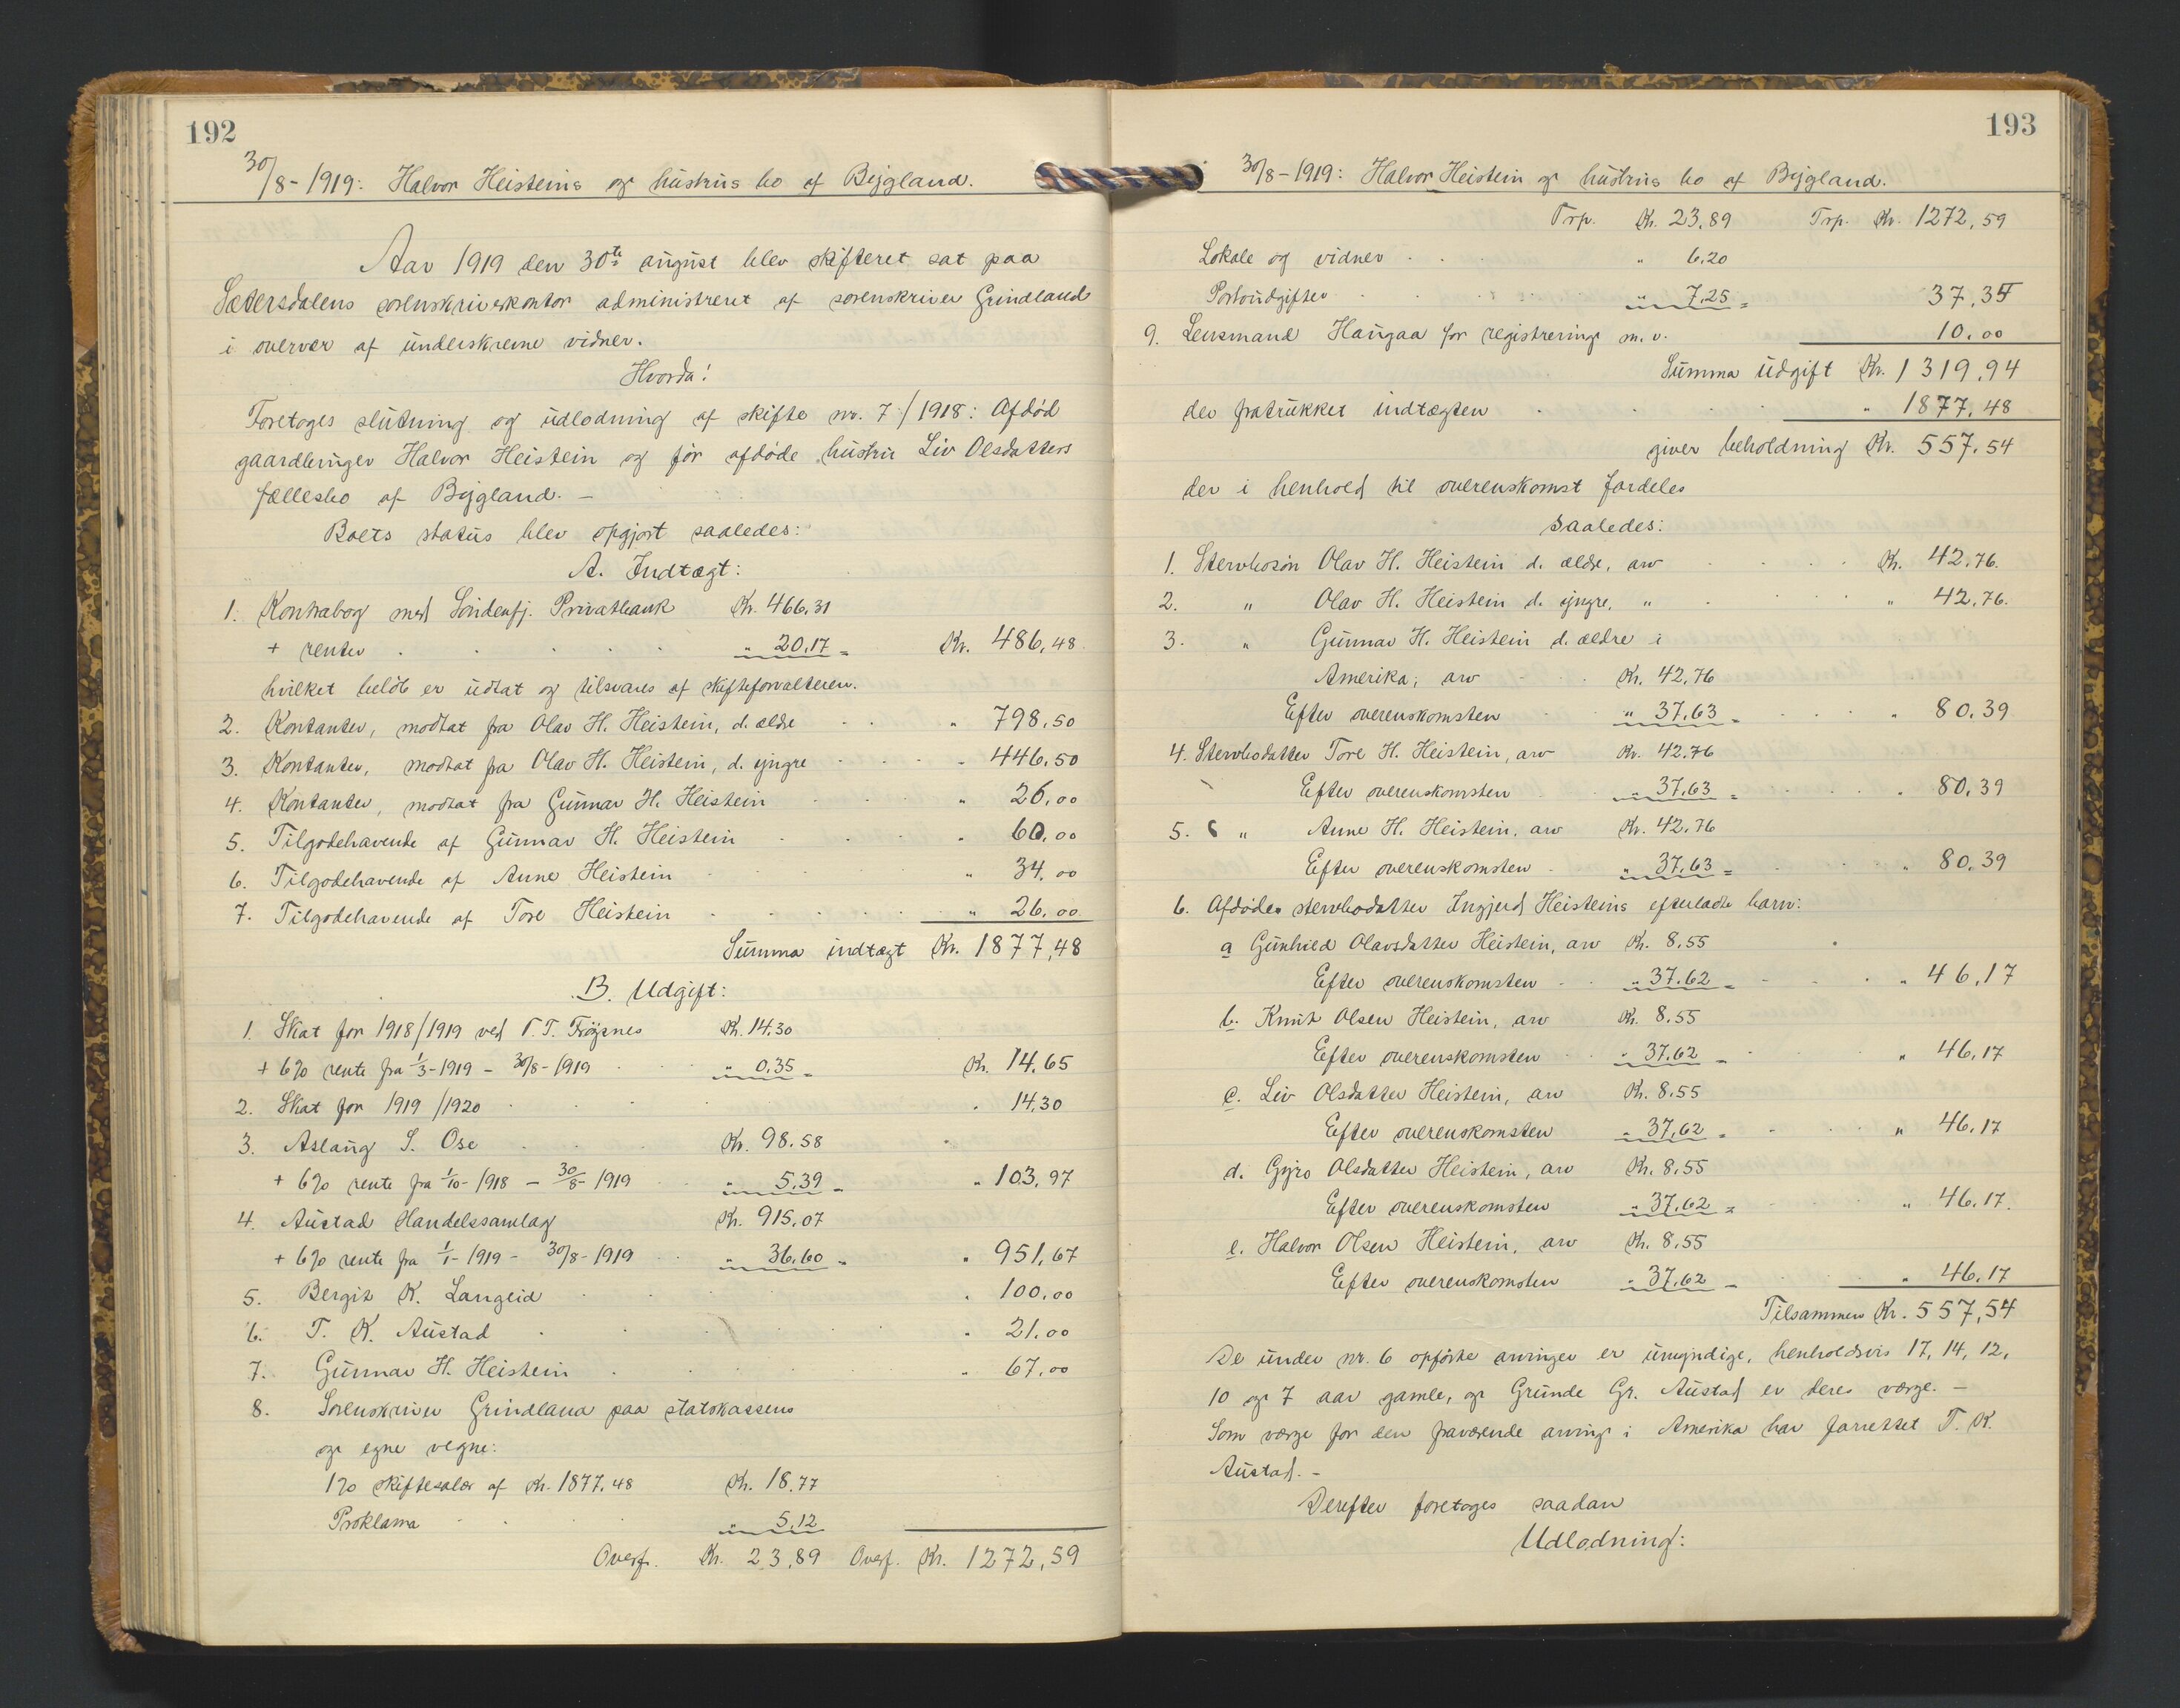 192
30/8-1919: Halvor Heisteins og hustrus bo af Bygland.
Aar 1919 den 30te august blev skifteret sat paa
Sætersdalens sorenskriverkontor administreret af sorenskriver Grindland
i overvær af underskrevne vidner.
Hvorda!
Foretoges slutning og udlodning af skifte nr. 7/1918: Afdød
gaardbruger Halvor Heistein og før afdøde hustru Liv Olsdatters
fællesbo af Bygland. –
Boets status blev opgjort saaledes:
A. Indtægt:
1. Kontrabog med Söndenfj. Privatbank Kr. 466,31
+ renter . . . . . " 20,17 = Kr. 486,48
hvilket beløb er udtat og tilsvares af skifteforvalteren.
2. Kontanter, modtat fra Olav H. Heistein, d. eldre . . " 798,50
3. Kontanter, modtat fra Olav H. Heistein, d. yngre . . . " 446,50
4. Kontanter, modtat fra Gunnar H. Heistein . . . " 26,00
5. Tilgodehavende af Gunnar H. Heistein . . . . " 60,00
6. Tilgodehavende af Anne Heistein . . . . " 34,00
7. Tilgodehavende af Tore Heistein . . . . . " 26,00
Summa indtægt Kr. 1877,48
B. Udgift:
1. Skat for 1918/1919 ved T. T. Frøysnes Kr. 14,30
+ 6% rente fra 1/3-1919 – 30/8-1919 . . " 0,35 = Kr. 14,65
2. Skat for 1919/1920 . . . . " 14,30
3. Aslaug S. Ose . . . Kr. 98,58
+ 6% rente fra 1/10-1918 – 30/8-1919 . . " 5,39 = " 103,97
4. Austad Handelssamlag Kr. 915,07
+ 6% rente fra 1/1-1919 – 30/8-1919 . . " 36,60 = " 951,67
5. Bergit K. Langeid . . . " 100,00
6. T. K. Austad . . . . . . " 21,00
7. Gunnar H. Heistein . . . . " 67,00
8. Sorenskriver Grindland paa statskassens
og egne vegne:
1% skiftesalær af Kr. 1877,48 Kr. 18,77
Proklama . . . . " 5,12
Overf. Kr. 23,89 Overf. Kr. 1272,59
193
30/8-1919: Halvor Heistein og hustrus bo af Bygland.
Trp. Kr. 23,89 Trp. Kr. 1272,59
Lokale og vidner . . . " 6,20
Portoudgifter . . . . . " 7,25 = 37,34
9. Lensmand Haugaa for registrering m.v. 10,00
Summa udgift Kr. 1319,94
der fratrukket indtægten . . . . . " 1877,48
giver beholdning Kr. 557,54
der i henhold til overenskomst fordeles
saaledes:
1. Stervbosøn Olav H. Heistein d. eldre, arv . . . . Kr. 42,76.
2. " Olav H. Heistein d. yngre, " . . . . " 42,76.
3. " Gunnar H. Heistein d. ældre i
Amerika, arv . . . Kr. 42,76
Efter overenskomsten . . " 37,63 = . . . . " 80,39
4. Stervbodatter Tore H. Heistein, arv Kr. 42,76
Efter overenskomsten . . " 37,63 = . . . . " 80,39
5. " Anne H. Heistein, arv Kr. 42,76
Efter overenskomsten . . " 37,63 = . . . " 80,39
6. Afdøde stervbodatter Ingjerd Heisteins efterladte barn:
a Gunhild Olavsdatter Heistein, arv Kr. 8,55
Efter overenskomsten . . " 37,62 = . . . " 46,17
b. Knut Olsen Heistein, arv Kr. 8,55
Efter overenskomsten . . " 37,62 = . . . " 46,17
c. Liv Olsdatter Heistein, arv Kr. 8,55
Efter overenskomsten " 37,62 = . . . " 46,17
d. Gyro Olsdatter Heistein, arv Kr. 8,55
Efter overenskomsten " 37,62 = . . . " 46,17.
e. Halvor Olsen Heistein, arv Kr. 8,55
Efter overenskomsten " 37,62 = . . . " 46,17
Tilsammen Kr. 557,54
De under nr. 6 opførte arvinger er umyndige, henholdsvis 17, 14, 12,
10 og 7 aar gamle, og Grunde Gr. Austad er deres værge. –
Som værge for den fraværende arving i Amerika har forrettet T. K.
Austad. –
Derefter foretoges saadan
Udlodning: